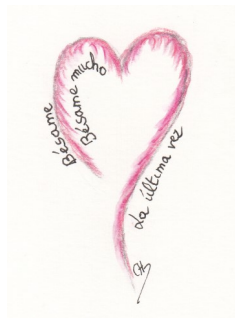 Bésame
Bésame mucho
La última vez